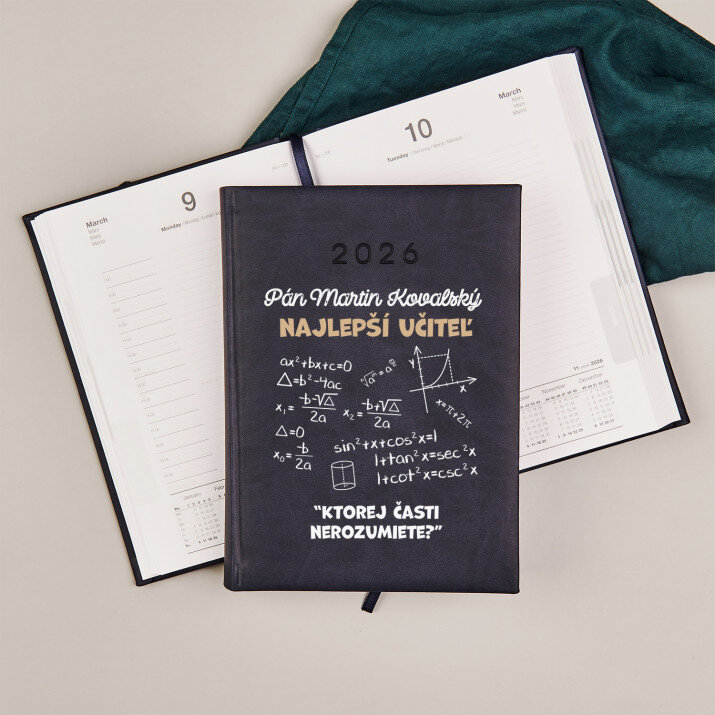 March
9
Monday
10
Tuesday
March
2026
Pán Martin Kovalský
NAJLEPŠÍ UČITEĽ
ax²+bx+c=0
△=b²-4ac
x₁ = -b-√△ / 2a
x₂ = -b+√△ / 2a
△=0
x₀ = -b / 2a
y
x
x=π+2π
sin²+x+cos²x=1
1+tan²x=sec²x
1+cot²x=csc²x
"KTOREJ ČASTI
NEROZUMIETE?"
January
November
December